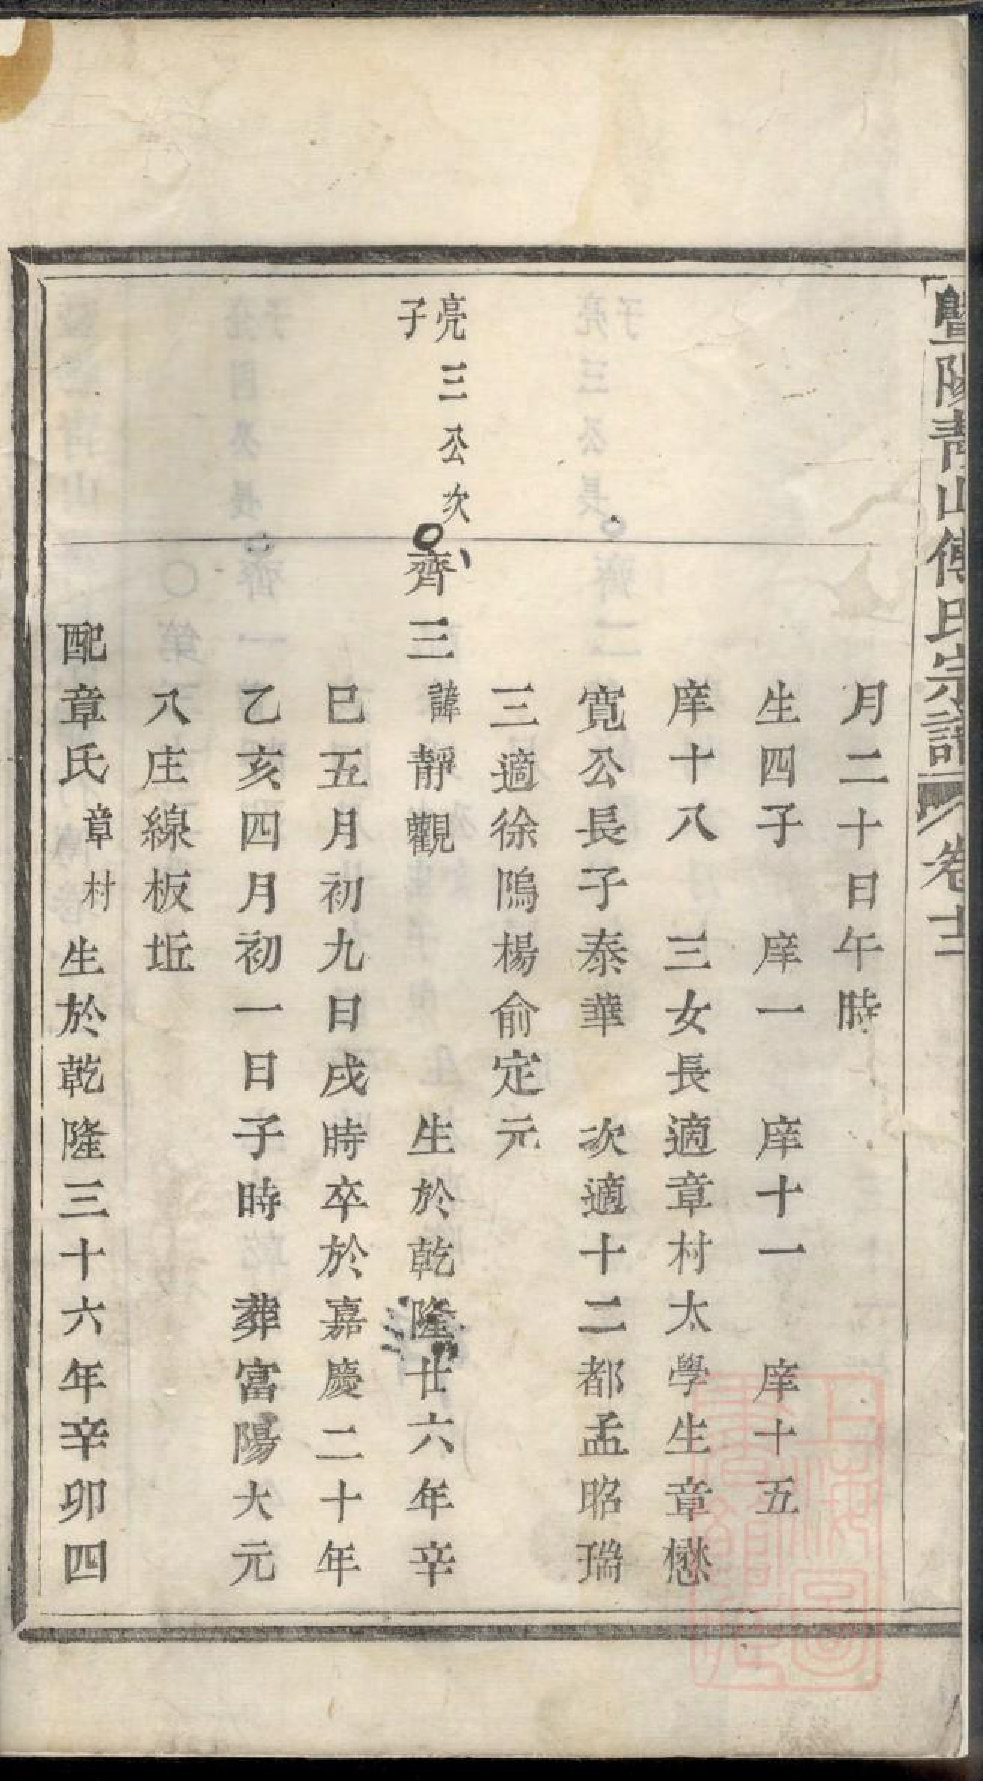 暨陽青山傅氏宗譜 卷十二
月二十日午時
生四子 庠一 庠十一 庠十五
庠十八 三女長適章村太學生章懋
寬公長子泰華 次適十二都孟昭瑞
三適徐隖楊俞定元
亮三公次
子
齊三 諱靜觀 生於乾隆廿六年辛
巳五月初九日戌時卒於嘉慶二十年
乙亥四月初一日子時 葬富陽大元
八庄線板坵
配章氏章村生於乾隆三十六年辛卯四
上海圖書館藏